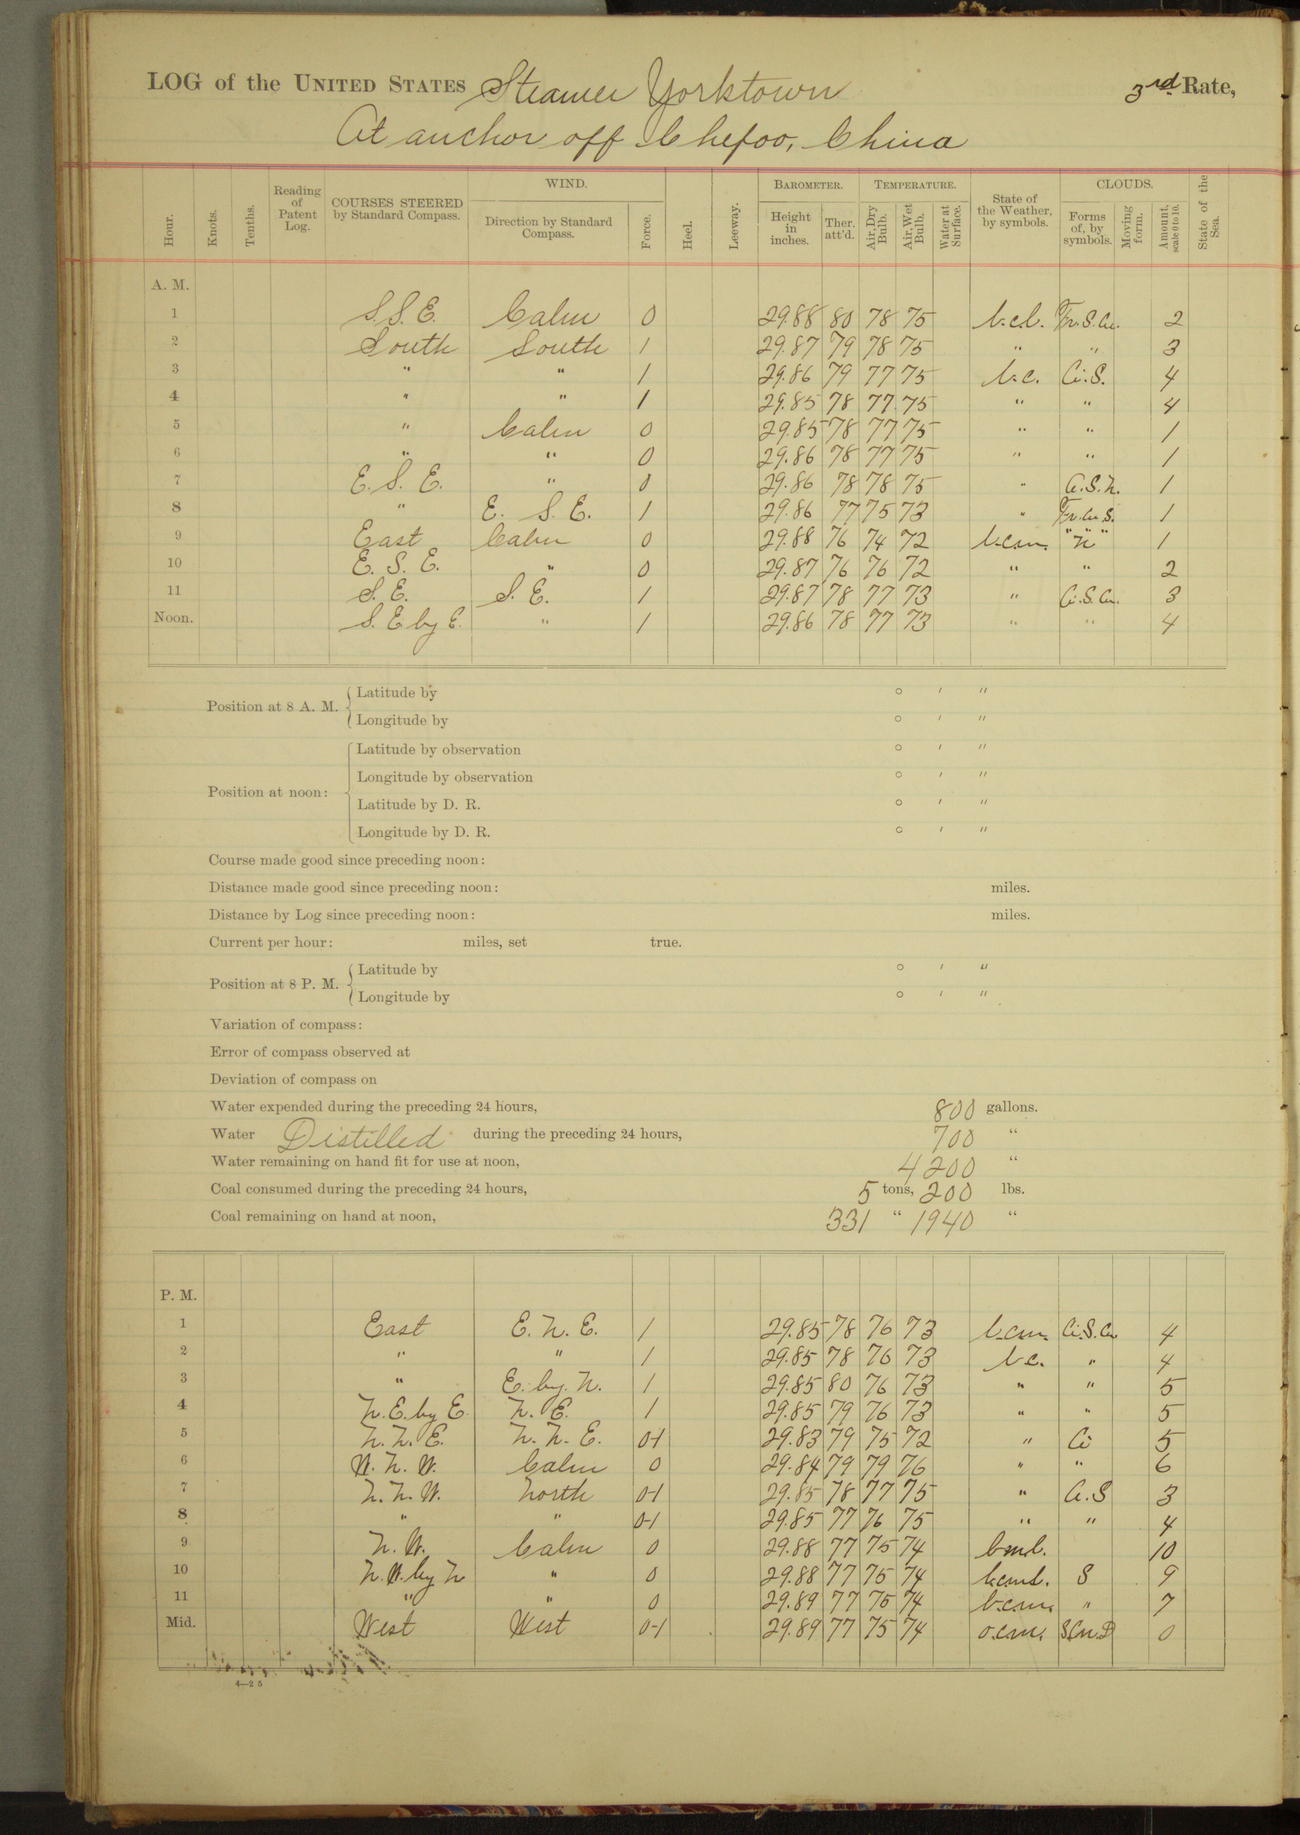 LOG of the UNITED STATES Steamer Yorktown 3rd Rate,
At anchor off Chefoo, China
Hour. Knots. Tenths. Reading of Patent Log. COURSES STEERED by Standard Compass. WIND. Direction by Standard Compass. Force. Heel. Leeway. BAROMETER. Height in inches. Ther. att'd. TEMPERATURE. Air, Dry Bulb. Air, Wet Bulb. Water at Surface. State of the Weather, by symbols. CLOUDS. Forms of, by symbols. Moving form. Amount, scale 0 to 10. State of the Sea.
A. M.
1 S.S.E. Calm 0 29.88 80 78 75 b.c.l. Fr.S.Cu. 2
2 South South 1 29.87 79 78 75 " " 3
3 " " 1 29.86 79 77 75 b.c. Ci.S. 4
4 " " 1 29.85 78 77 75 " " 4
5 " Calm 0 29.85 78 77 75 " " 1
6 " " 0 29.86 78 77 75 " " 1
7 E. S. E. " 0 29.86 78 78 75 " Ci.S.N. 1
8 " E. S. E. 1 29.86 77 75 73 " Fr.Cu.S. 1
9 East Calm 0 29.88 76 74 72 b.c.m. " N " 1
10 E. S. E. " 0 29.87 76 76 72 " " 2
11 S. E. S. E. 1 29.87 78 77 73 " Ci.S.Cu. 3
Noon. S. E by E. " 1 29.86 78 77 73 " " 4
Position at 8 A. M. Latitude by ° ′ ″
Longitude by ° ′ ″
Position at noon: Latitude by observation ° ′ ″
Longitude by observation ° ′ ″
Latitude by D. R. ° ′ ″
Longitude by D. R. ° ′ ″
Course made good since preceding noon:
Distance made good since preceding noon: miles.
Distance by Log since preceding noon: miles.
Current per hour: miles, set true.
Position at 8 P. M. Latitude by ° ′ ″
Longitude by ° ′ ″
Variation of compass:
Error of compass observed at
Deviation of compass on
Water expended during the preceding 24 hours, 800 gallons.
Water Distilled during the preceding 24 hours, 700 "
Water remaining on hand fit for use at noon, 4200 "
Coal consumed during the preceding 24 hours, 5 tons, 200 lbs.
Coal remaining on hand at noon, 331 " 1940 "
P. M.
1 East E. N. E. 1 29.85 78 76 73 b.c.m. Ci.S.Cu. 4
2 " " 1 29.85 78 76 73 b.c. " 4
3 " E. by. N. 1 29.85 80 76 73 " " 5
4 N.E. by E. N. E. 1 29.85 79 76 73 " " 5
5 N. N. E. N. N. E. 0-1 29.83 79 75 72 " Ci 5
6 W. N. W. Calm 0 29.84 79 79 76 " " 6
7 N. N. W. North 0-1 29.85 78 77 75 " Ci.S 3
8 " " 0-1 29.85 77 76 75 " " 4
9 N. W. Calm 0 29.88 77 75 74 b.m.l. 10
10 N.W. by N " 0 29.88 77 75 74 b.c.m.l. S 9
11 " " 0 29.89 77 75 74 b.c.m. " 7
Mid. West West 0-1 29.89 77 75 74 o.c.m. 0
4—25